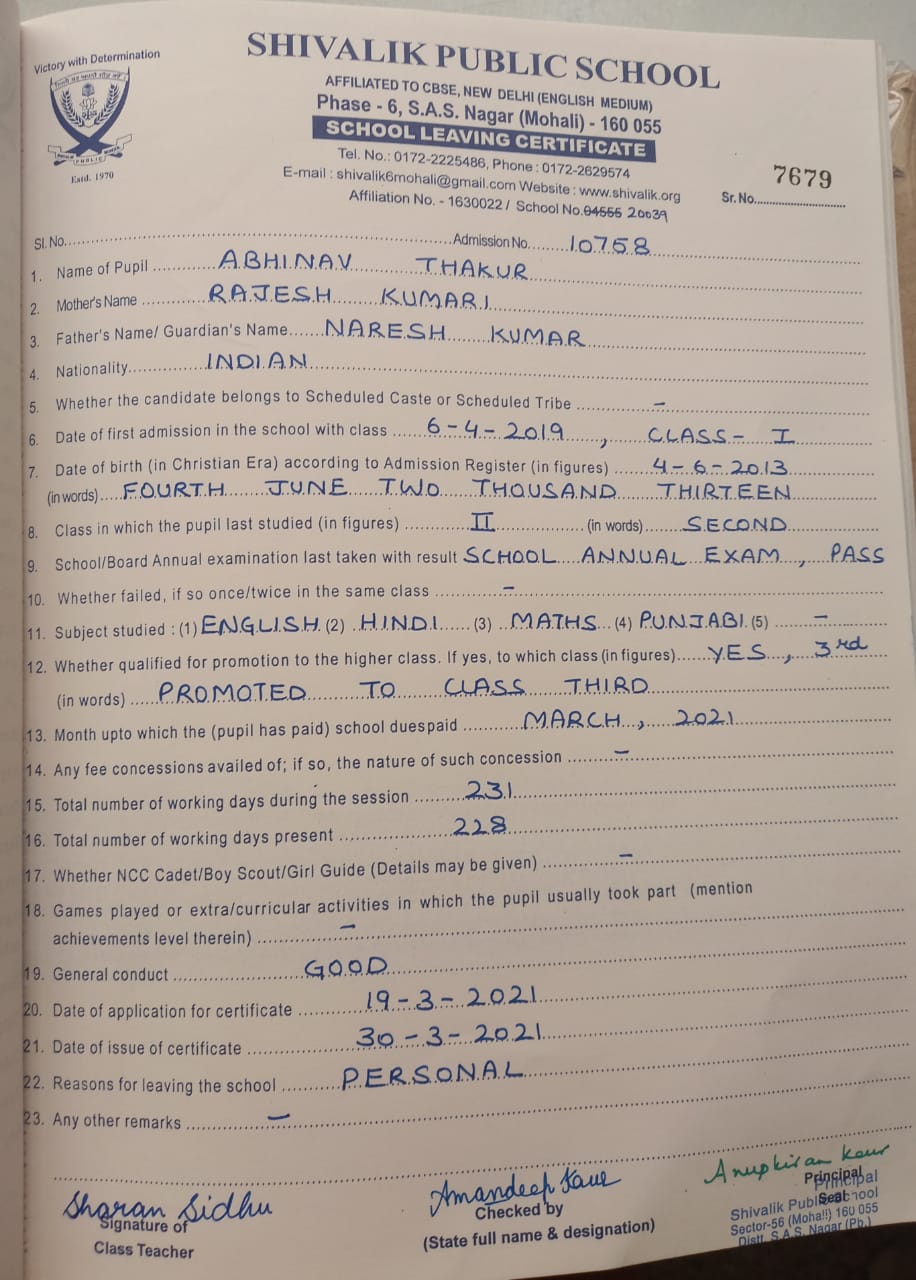 Victory with Determination
SHIVALIK PUBLIC SCHOOL
AFFILIATED TO CBSE, NEW DELHI (ENGLISH MEDIUM)
Phase - 6, S.A.S. Nagar (Mohali) - 160 055
SCHOOL LEAVING CERTIFICATE
Tel. No.: 0172-2225486, Phone : 0172-2629574
E-mail : shivalik6mohali@gmail.com Website : www.shivalik.org
Affiliation No. - 1630022 / School No. 04555 20039
PUBLIC
Estd. 1970
7679
Sr. No.
Sl. No. Admission No. 10758
1. Name of Pupil ABHINAV THAKUR
2. Mother's Name RAJESH KUMARI
3. Father's Name/ Guardian's Name NARESH KUMAR
4. Nationality INDIAN
5. Whether the candidate belongs to Scheduled Caste or Scheduled Tribe –
6. Date of first admission in the school with class 6-4-2019, CLASS- I
7. Date of birth (in Christian Era) according to Admission Register (in figures) 4-6-2013
(in words) FOURTH JUNE TWO THOUSAND THIRTEEN
8. Class in which the pupil last studied (in figures) II (in words) SECOND
9. School/Board Annual examination last taken with result SCHOOL ANNUAL EXAM, PASS
10. Whether failed, if so once/twice in the same class –
11. Subject studied : (1) ENGLISH (2) HINDI (3) MATHS (4) PUNJABI (5) –
12. Whether qualified for promotion to the higher class. If yes, to which class (in figures) YES, 3rd
(in words) PROMOTED TO CLASS THIRD
13. Month upto which the (pupil has paid) school duespaid MARCH, 2021
14. Any fee concessions availed of; if so, the nature of such concession –
15. Total number of working days during the session 231
16. Total number of working days present 228
17. Whether NCC Cadet/Boy Scout/Girl Guide (Details may be given) –
18. Games played or extra/curricular activities in which the pupil usually took part (mention
achievements level therein) –
19. General conduct GOOD
20. Date of application for certificate 19-3-2021
21. Date of issue of certificate 30-3-2021
22. Reasons for leaving the school PERSONAL
23. Any other remarks –
Sharan Sidhu
Signature of
Class Teacher
Amandeep Kaur
Checked by
(State full name & designation)
Anupkiran Kaur
Principal
Seal
Principal
Shivalik Public School
Sector-56 (Mohali) 160 055
Distt. S.A.S. Nagar (Pb.)